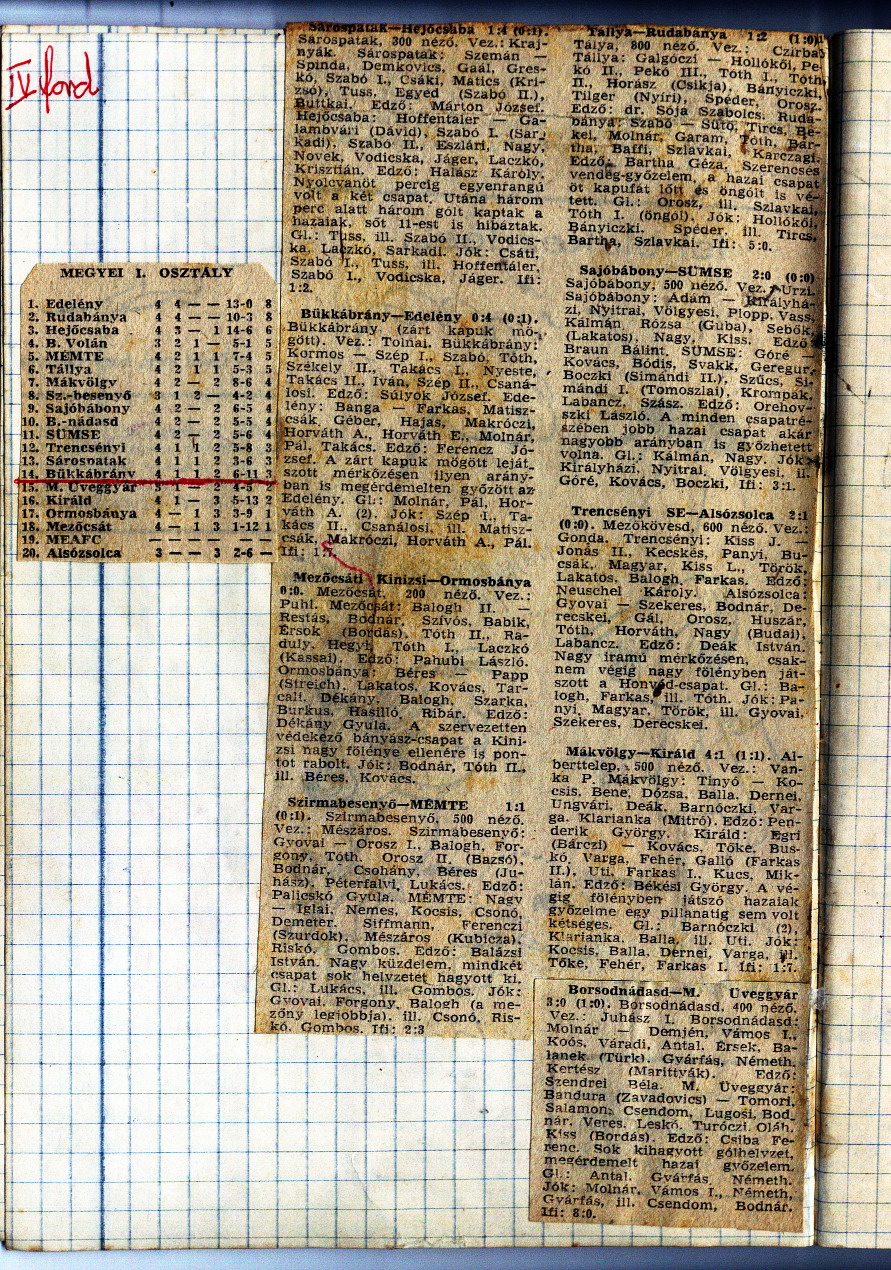 IV. ford
MEGYEI I. OSZTÁLY
1. Edelény 4 4 — — 13-0 8
2. Rudabánya 4 4 — — 10-3 8
3. Hejőcsaba 4 3 — 1 14-6 6
4. B. Volán 3 2 1 — 5-1 5
5. MÉMTE 4 2 1 1 7-4 5
6. Tállya 4 2 1 1 5-3 5
7. Mákvölgy 4 2 — 2 8-6 4
8. Sz.-besenyő 3 1 2 — 4-2 4
9. Sajóbábony 4 2 — 2 6-5 4
10. B.-nádasd 4 2 — 2 5-5 4
11. SÜMSE 4 2 — 2 5-6 4
12. Trencsényi 4 1 1 2 5-8 3
13. Sárospatak 4 1 1 2 3-6 3
14. Bükkábrány 4 1 1 2 6-11 3
15. M. Üveggyár 3 1 — 2 4-5
16. Királd 4 1 — 3 5-13 2
17. Ormosbánya 4 — 1 3 3-9 1
18. Mezőcsát 4 — 1 3 1-12 1
19. MEAFC — — — — — —
20. Alsózsolca 3 — — 3 2-6 —
Sárospatak—Hejőcsaba 1:4 (0:1).
Sárospatak, 300 néző. Vez.: Kraj-
nyák. Sárospatak: Szemán —
Spinda, Demkovics, Gaál, Gres-
kó, Szabó I., Csáki, Matics (Kri-
zsó), Tuss, Egyed (Szabó II.),
Buttkai. Edző: Márton József.
Hejőcsaba: Hoffentaler — Ga-
lambvári (Dávid), Szabó I. (Sar-
kadi), Szabó II., Eszlári, Nagy,
Novek, Vodicska, Jáger, Laczkó,
Krisztián. Edző: Halász Károly.
Nyolcvanöt percig egyenrangú
volt a két csapat. Utána három
perc alatt három gólt kaptak a
hazaiak, sőt 11-est is hibáztak.
Gl.: Tuss, ill. Szabó II., Vodics-
ka, Laczkó, Sarkadi. Jók: Csáti,
Szabó I., Tuss, ill. Hoffentáler,
Szabó I., Vodicska, Jáger. Ifi:
1:2.
Bükkábrány—Edelény 0:4 (0:1).
Bükkábrány (zárt kapuk mö-
gött). Vez.: Tolnai. Bükkábrány:
Kormos — Szép I., Szabó, Tóth,
Székely II., Takács I., Nyeste,
Takács II., Iván, Szép II., Csaná-
losi. Edző: Súlyok József. Ede-
lény: Banga — Farkas, Matisz-
csák, Géber, Hajas, Makróczi,
Horváth A., Horváth E., Molnár,
Pál, Takács. Edző: Ferencz Jó-
zsef. A zárt kapuk mögött leját-
szott mérkőzésen ilyen arány-
ban is megérdemelten győzött az
Edelény. Gl.: Molnár, Pál, Hor-
váth A. (2). Jók: Szép I., Ta-
kács II., Csanálosi, ill. Matisz-
csák, Makróczi, Horváth A., Pál.
Ifi: 1:7.
Mezőcsáti Kinizsi—Ormosbánya
0:0. Mezőcsát, 200 néző. Vez.:
Puhl. Mezőcsát: Balogh II. —
Restás, Bodnár, Szívós, Babik,
Érsok (Bordás), Tóth II., Rá-
duly, Hegyi, Tóth I., Laczkó
(Kassai). Edző: Pahubi László.
Ormosbánya: Béres — Papp
(Streich), Lakatos, Kovács, Tar-
cali, Dékány, Balogh, Szarka,
Burkus, Hasilló, Ribár. Edző:
Dékány Gyula. A szervezetten
védekező bányász-csapat a Kini-
zsi nagy fölénye ellenére is pon-
tot rabolt. Jók: Bodnár, Tóth II.,
ill. Béres, Kovács.
Szirmabesenyő—MÉMTE 1:1
(0:1). Szirmabesenyő, 500 néző.
Vez.: Mészáros. Szirmabesenyő:
Gyovai — Orosz I., Balogh, For-
góny, Tóth, Orosz II. (Bazsó),
Bodnár, Csohány, Béres (Ju-
hász), Péterfalvi, Lukács. Edző:
Palicskó Gyula. MÉMTE: Nagy
— Iglai, Nemes, Kocsis, Csonó,
Demeter, Siffmann, Ferenczi
(Szurdok), Mészáros (Kubicza),
Riskó, Gombos. Edző: Balázsi
István. Nagy küzdelem, mindkét
csapat sok helyzetet hagyott ki.
Gl.: Lukács, ill. Gombos. Jók:
Gyovai, Forgony, Balogh (a me-
zőny legjobbja), ill. Csonó, Ris-
kó, Gombos. Ifi: 2:3
Tállya—Rudabánya 1:2 (1:0).
Tálya, 800 néző. Vez.: Czirba.
Tállya: Galgóczi — Hollókői, Pe-
kó II., Pekó III., Tóth I., Tóth
II., Horász (Csikja), Bányiczki,
Tilger (Nyíri), Spéder, Orosz.
Edző: dr. Sója Szabolcs. Ruda-
bánya: Szabó — Sütő, Tircs, Be-
kei, Molnár, Garam, Tóth, Bar-
tha, Baffi, Szlavkai, Karczagi.
Edző: Bartha Géza. Szerencsés
vendég-győzelem, a hazai csapat
öt kapufát lőtt és öngólt is vé-
tett. Gl.: Orosz, ill. Szlavkai,
Tóth I. (öngól). Jók: Hollókői,
Bányiczki, Spéder, ill. Tircs,
Bartha, Szlavkai. Ifi: 5:0.
Sajóbábony—SÜMSE 2:0 (0:0)
Sajóbábony, 500 néző. Vez.: Urzi.
Sajóbábony: Ádám — Királyhá-
zi, Nyitrai, Völgyesi, Plopp, Vass,
Kálmán, Rózsa (Guba), Sebők,
(Lakatos), Nagy, Kiss. Edző:
Braun Bálint. SÜMSE: Góré —
Kovács, Bódis, Svakk, Geregur,
Boczki (Simándi II.), Szűcs, Si-
mándi I. (Tomoszlai), Krompák,
Labancz, Szász. Edző: Orehov-
szki László. A minden csapatré-
szében jobb hazai csapat akár
nagyobb arányban is győzhetett
volna. Gl.: Kálmán, Nagy. Jók:
Királyházi, Nyitrai, Völgyesi, ill.
Góré, Kovács, Boczki, Ifi: 3:1.
Trencsényi SE—Alsózsolca 2:1
(0:0). Mezőkövesd, 600 néző. Vez.:
Gonda. Trencsényi: Kiss J. —
Jónás II., Kecskés, Panyi, Bu-
csák, Magyar, Kiss L., Török,
Lakatos, Balogh, Farkas. Edző:
Neuschel Károly. Alsózsolca:
Gyovai — Szekeres, Bodnár, De-
recskei, Gál, Orosz, Huszár,
Tóth, Horváth, Nagy (Budai),
Labancz. Edző: Deák István.
Nagy iramú mérkőzésen, csak-
nem végig nagy fölényben ját-
szott a Honvéd-csapat. Gl.: Ba-
logh, Farkas, ill. Tóth. Jók: Pa-
nyi, Magyar, Török, ill. Gyovai,
Szekeres, Derecskei.
Mákvölgy—Királd 4:1 (1:1). Al-
berttelep, 500 néző. Vez.: Van-
ka P. Mákvölgy: Tinyó — Ko-
csis, Bene, Dózsa, Balla, Dernei,
Ungvári, Deák, Barnóczki, Var-
ga, Klarianka (Mitró). Edző: Pen-
derik György. Királd: Egri
(Bárczi) — Kovács, Tőke, Bus-
kó, Varga, Fehér, Galló (Farkas
II.), Uti, Farkas I., Kucs, Mik-
lán. Edző: Békési György. A vé-
gig fölényben játszó hazaiak
győzelme egy pillanatig sem volt
kétséges. Gl.: Barnóczki (2),
Klarianka, Balla, ill. Uti. Jók:
Kocsis, Balla, Dernei, Varga, ill.
Tőke, Fehér, Farkas I. Ifi: 1:7.
Borsodnádasd—M. Üveggyár
3:0 (1:0). Borsodnádasd, 400 néző.
Vez.: Juhász I. Borsodnádasd:
Molnár — Demjén, Vámos I.,
Koós, Váradi, Antal, Érsek, Ba-
lanek (Türk), Gyárfás, Németh,
Kertész (Marittyák). Edző:
Szendrei Béla. M. Üveggyár:
Bandura (Zavadovics) — Tomori,
Salamon, Csendom, Lugosi, Bod-
nár, Veres, Leskó, Turóczi, Oláh,
Kiss (Bordás). Edző: Csiba Fe-
renc. Sok kihagyott gólhelyzet,
megérdemelt hazai győzelem.
Gl.: Antal, Gyárfás, Németh.
Jók: Molnár, Vámos I., Németh,
Gyárfás, ill. Csendom, Bodnár.
Ifi: 8:0.